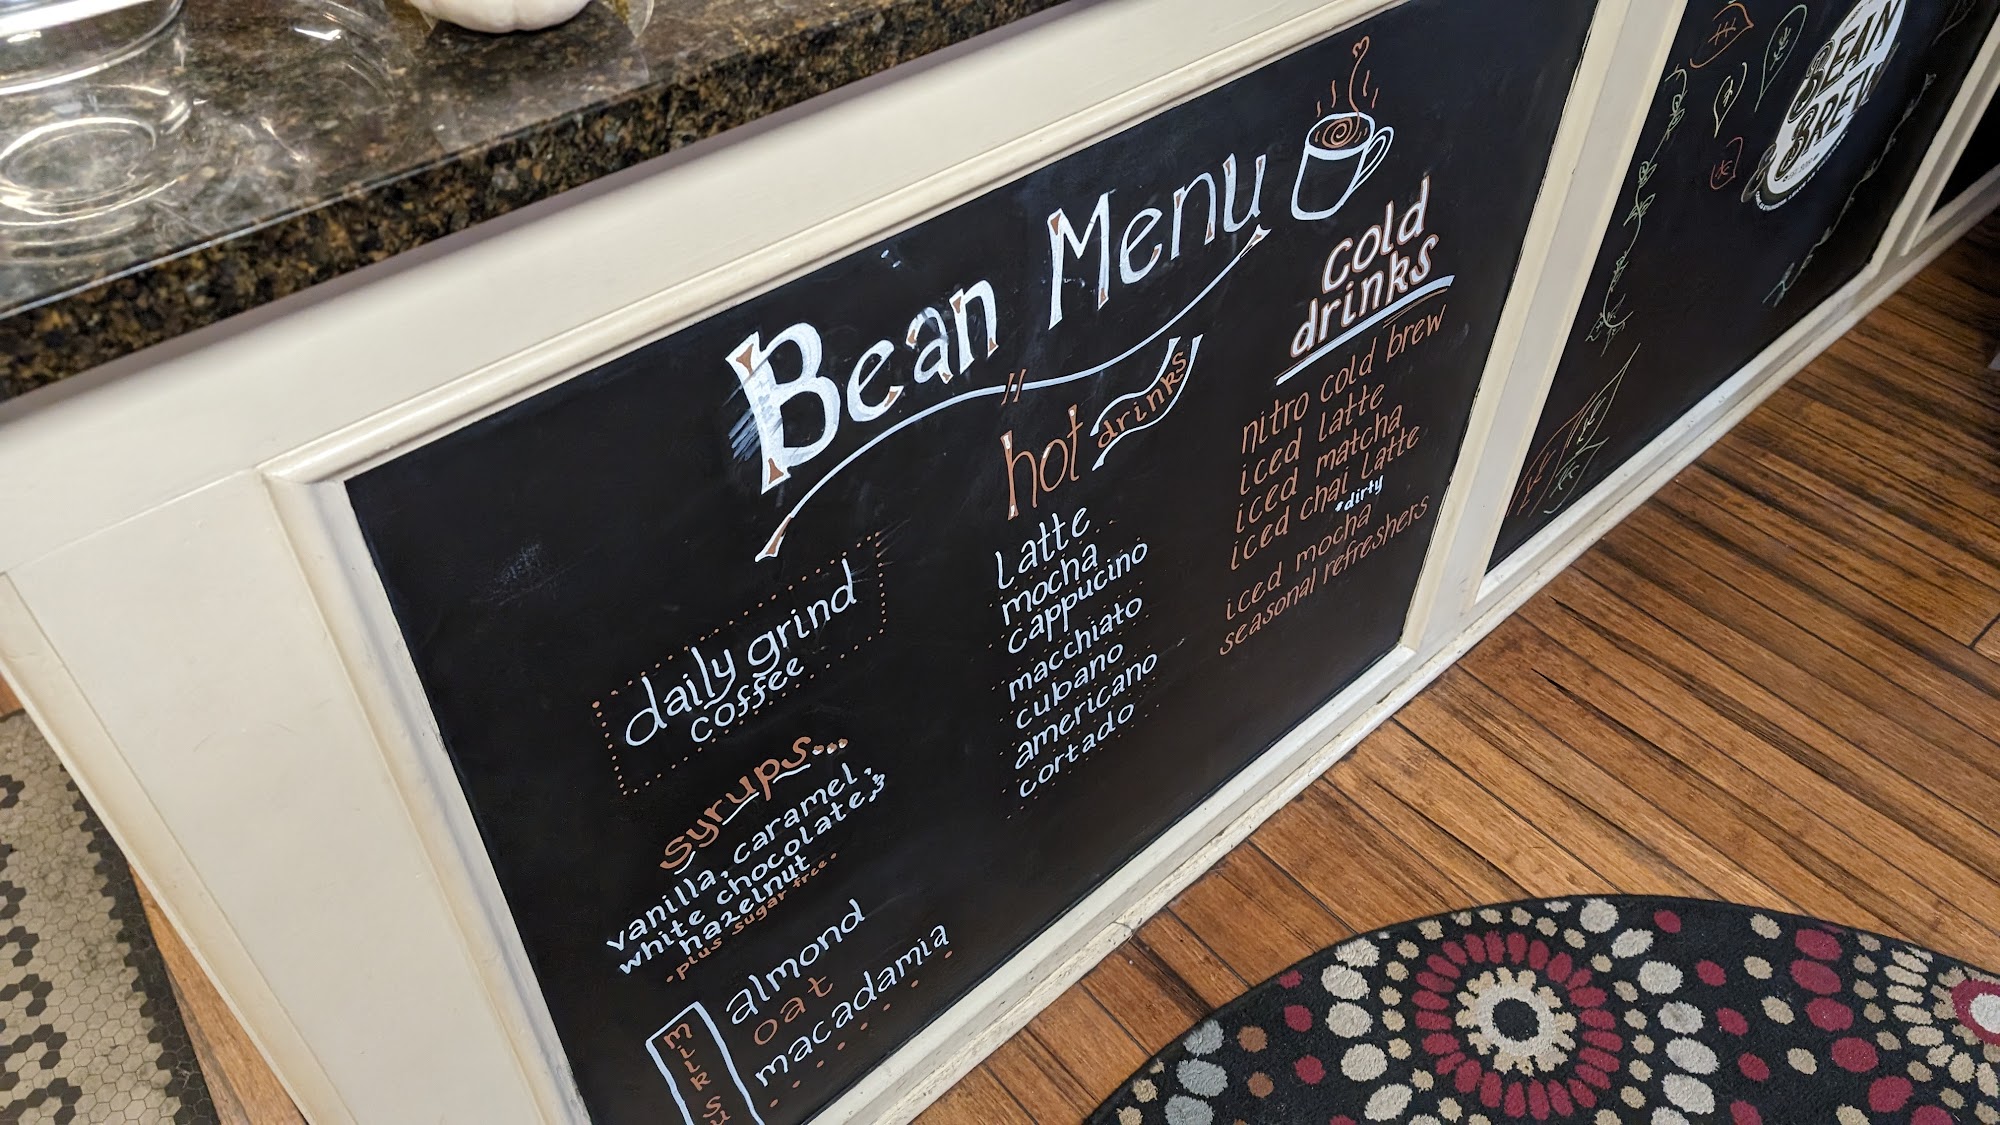 Bean Menu
daily grind
coffee
syrups...
vanilla, caramel,
white chocolate,
hazelnut
• plus sugar free •
milk su
almond
oat
macadamia
hot drinks
Latte
mocha
cappucino
macchiato
cubano
americano
cortado
cold
drinks
nitro cold brew
iced latte
iced matcha
iced chai latte
*dirty
iced mocha
seasonal refreshers
BEAN
BREW